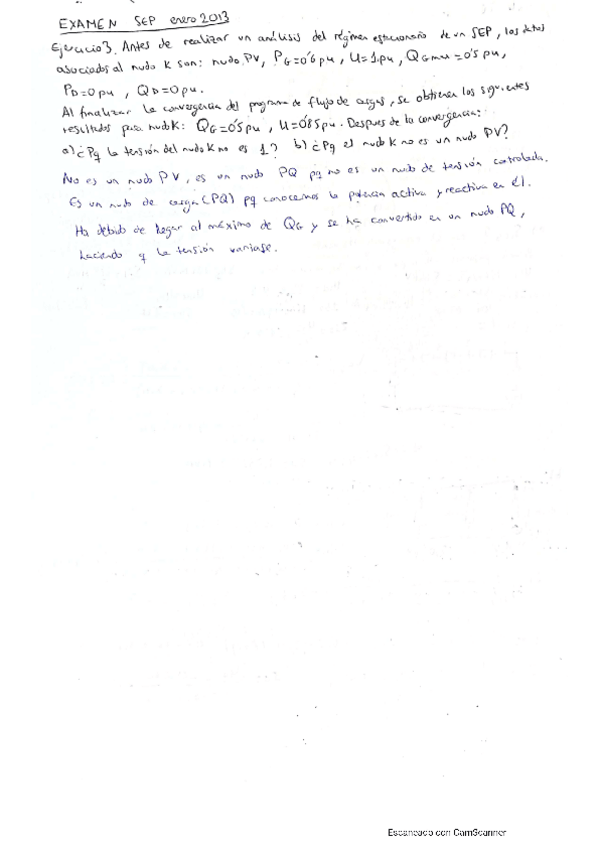 EXAMEN SEP enero 2013
Ejercicio 3. Antes de realizar un análisis del régimen estacionario de un SEP, los datos
asociados al nudo K son: nudo PV, PG=0'6 pu, U=1 pu, QGmax=0'5 pu,
PD=0 pu, QD=0 pu.
Al finalizar la convergencia del programa de flujo de cargas, se obtienen los siguientes
resultados para nudo K: QG=0'5 pu, U=0'85 pu. Despues de la convergencia:
a) ¿Pq la tensión del nudo K no es 1? b) ¿Pq el nudo K no es un nudo PV?
No es un nudo PV, es un nudo PQ pq no es un nudo de tensión controlada.
Es un nudo de carga (PQ) pq conocemos la potencia activa y reactiva en él.
Ha debido de llegar al máximo de QG y se ha convertido en un nudo PQ,
haciendo q la tensión variase.
Escaneado con CamScanner